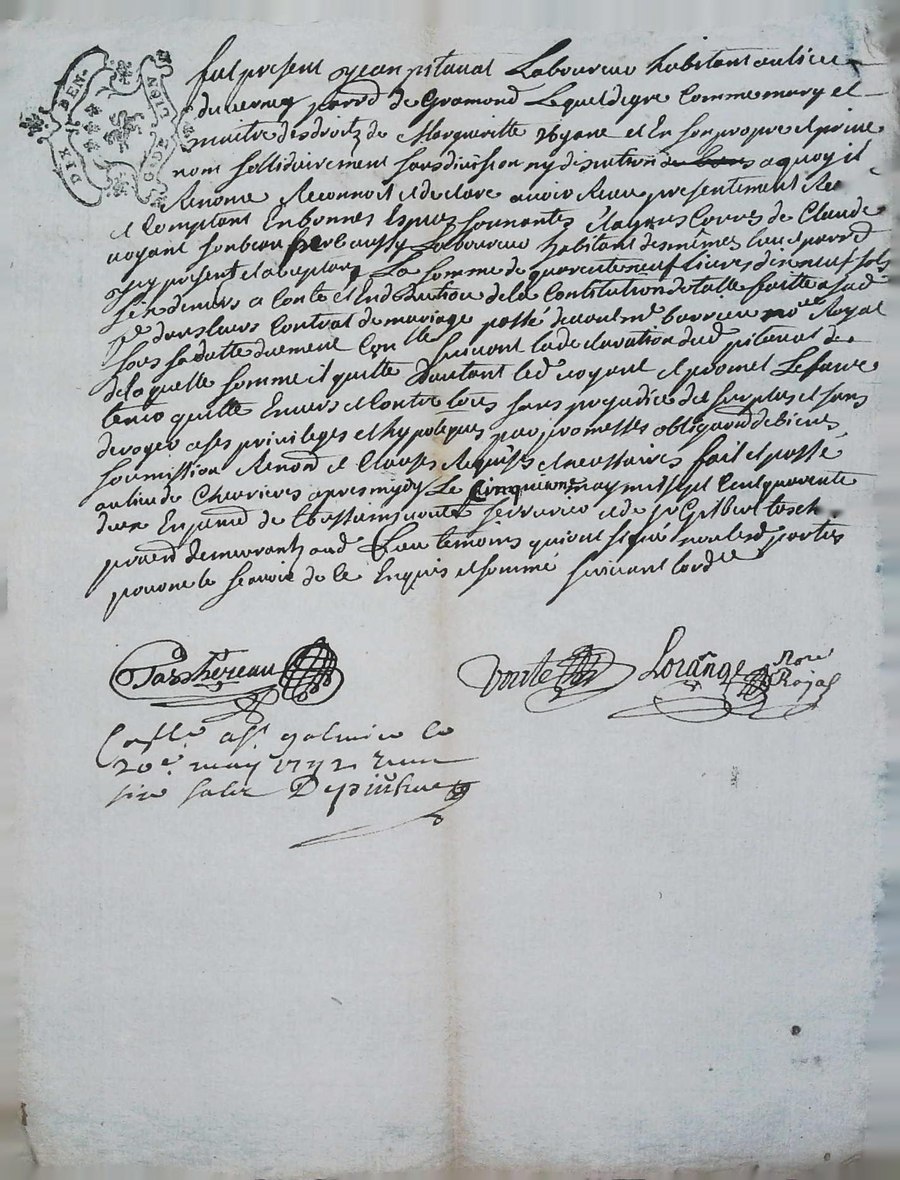 DIX DEN.
LION
fut present Jean pitaval Laboureur habitant au lieu
du verney parr.d de Gramond Lequel de gre Comme mary et
maitre des droitz de Margueritte voyane et En son propre et prive
nom sollidairement sans division ny discution a quoy il
Renonce Reconnoit et declare avoir Receu presentement
et Comptant En bonnes Espees sonnantes et ayans Cours de Claude
voyant son beau aussy Laboureur habitant des mêmes lieu et parr.d
icy present et acceptant La somme de quarente neuf livres dix neuf sols
six deniers a Conte et En deduction de la Constitution dotalle faitte a sad.
dans leurs Contrat de mariage passé devant m.e no.re Royal
sous sa datte duement Con.llé suivant la declaration dud. pitaval de
de laquelle somme il quitte d'autant led. voyant et promet Le faire
tenir quitte Envers et Contre tous sans prejudice du surplus et sans
deroger a ses privileges et hypoteques par promesses obligaon.d de biens
soumission Renon.d et Clauses Requises et necessaires fait et passé
au lieu de Chevrieres apres midy Le Cinquieme may mil sept Cent quarente
deux En presence de voute serrurier et de s.r Gilbert
demeurant aud. Lieu temoins qui ont signé non lesd. parties
pour ne le scavoir de ce Enquis et sommé suivant lord.ce
voute Lorange Nore
Royal
Con.llé a S.t galmier le
20.e may 1742 Receu
six sols